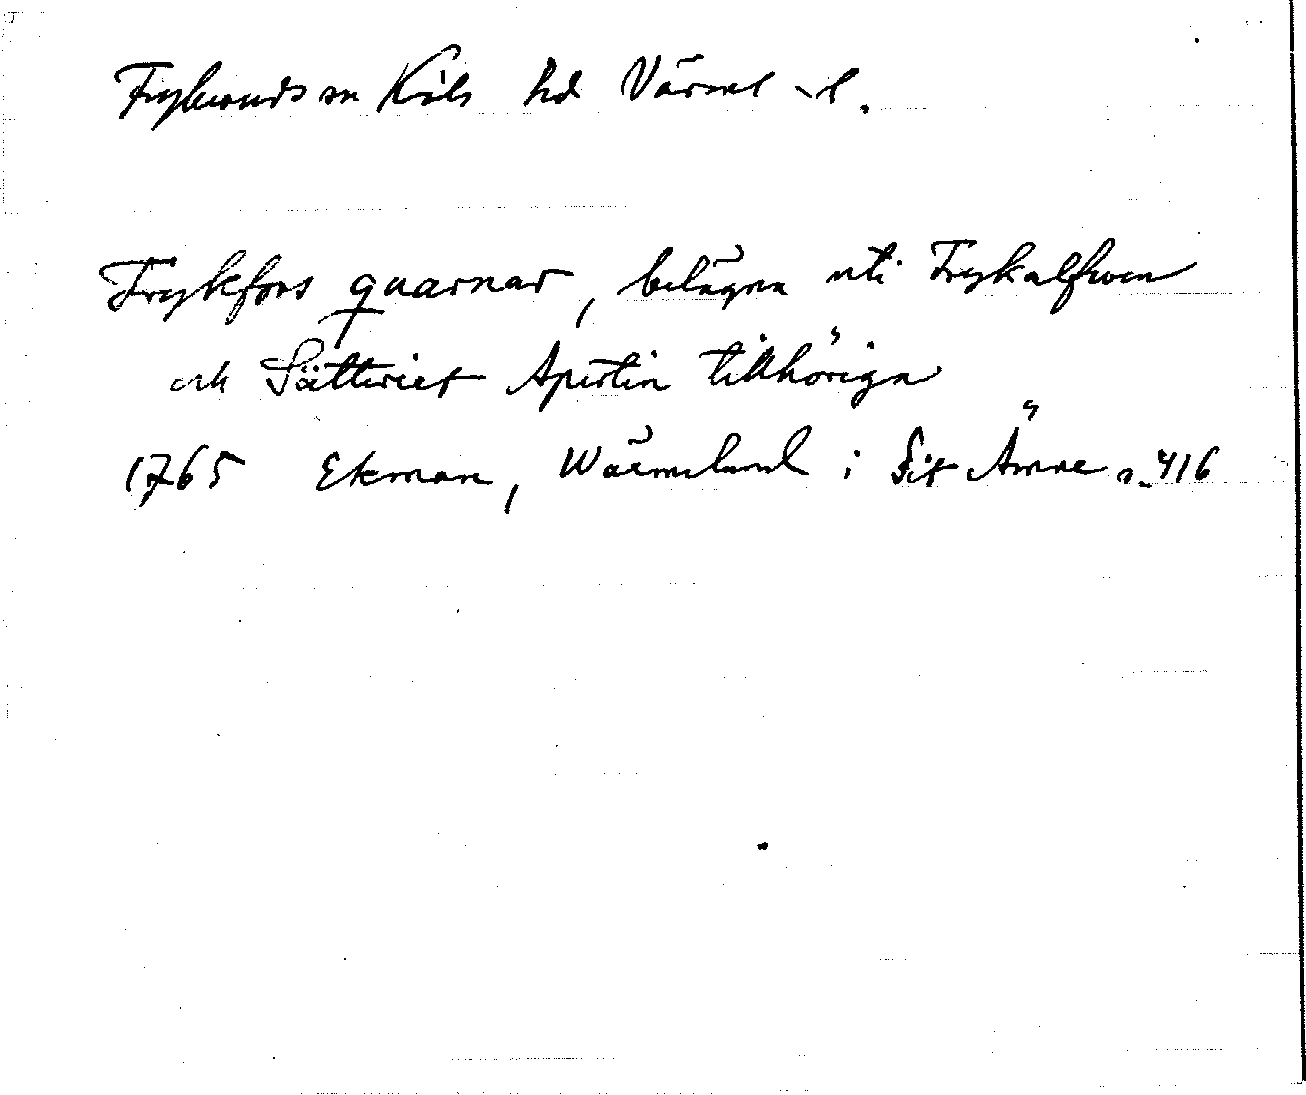 Frykerud sn Kils hd Värml l.
Frykfors quarnar, belägna uti Frykalfven
och Sätteriet Apertin tillhöriga
1765 Ekman, Wärmeland i sit Ämne s. 416